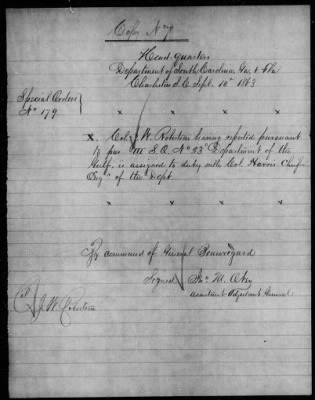 Copy No 7
Head quarters
Department of South Carolina Ga. & Fla
Charleston S.C. Sept. 10th 1863
Special Orders
No 179
x x x x
X. Col J W. Robertson having reported pursuant
to par. III S.O. No 93 Department of the
Gulf, is assigned to duty with Col. Harris Chief
Engr of the Dept
x x x x
By command of General Beauregard
Signed Jno M. Otey
Assistant Adjutant General
Col J. W. Robertson